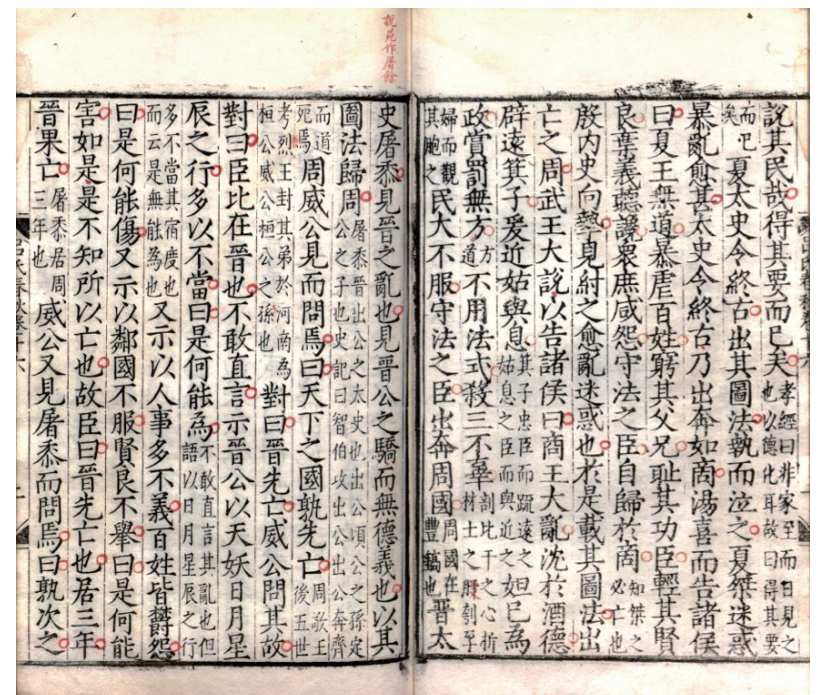 說其民哉得其要而已矣孝經曰非家至而日見之也以德化耳故曰得其要
而已矣夏太史令終古出其圖法執而泣之夏桀迷惑
暴亂愈甚太史令終古乃出奔如商湯喜而告諸侯
曰夏王無道暴虐百姓窮其父兄恥其功臣輕其賢
良棄義聽讒衆庶咸怨守法之臣自歸於商知桀之必亡也
殷內史向摯見紂之愈亂迷惑也於是載其圖法出
亡之周武王大說以告諸侯曰商王大亂沈於酒德
辟遠箕子爰近姑與息其子忠臣而疏遠之姑息之臣而與近之妲己為
政賞罰無方方道不用法式殺三不辜剖比干之心折材士之股刳孕
婦而觀其胞之民大不服守法之臣出奔周國周國在豐鎬也晉太
呂氏春秋卷十六
說苑作屠餘
史屠黍見晉之亂也見晉公之驕而無德義也以其
圖法歸周屠黍晉出公之太史也出公頃公之孫定公之子也史記曰智伯攻出公出公奔齊
而道死焉周威公見而問焉曰天下之國孰先亡周敬王後五世
考烈王封其弟於河南為桓公威公桓公之孫也對曰晉先亡威公問其故
對曰臣比在晉也不敢直言示晉公以天妖日月星
辰之行多以不當曰是何能為不敢直言其亂也但語以日月星辰之行
多不當其宿度也而云是無能為也又示以人事多不義百姓皆鬱怨
曰是何能傷又示以鄰國不服賢良不舉曰是何能
害如是是不知所以亡也故臣曰晉先亡也居三年
晉果亡屠黍居周三年也威公又見屠黍而問焉曰孰次之
呂氏春秋卷十六